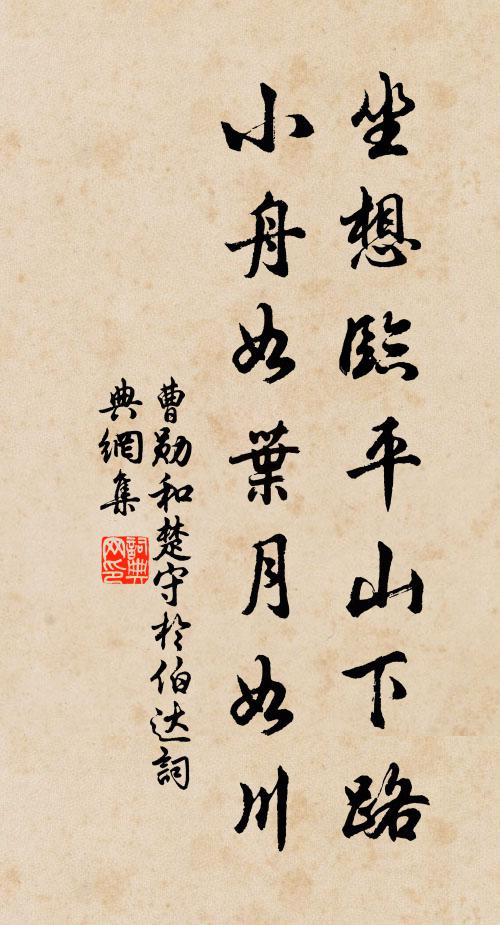 坐想臨平山下路
小舟如葉月如川
曹勋和楚守於伯达詞
典網集
詞典网印